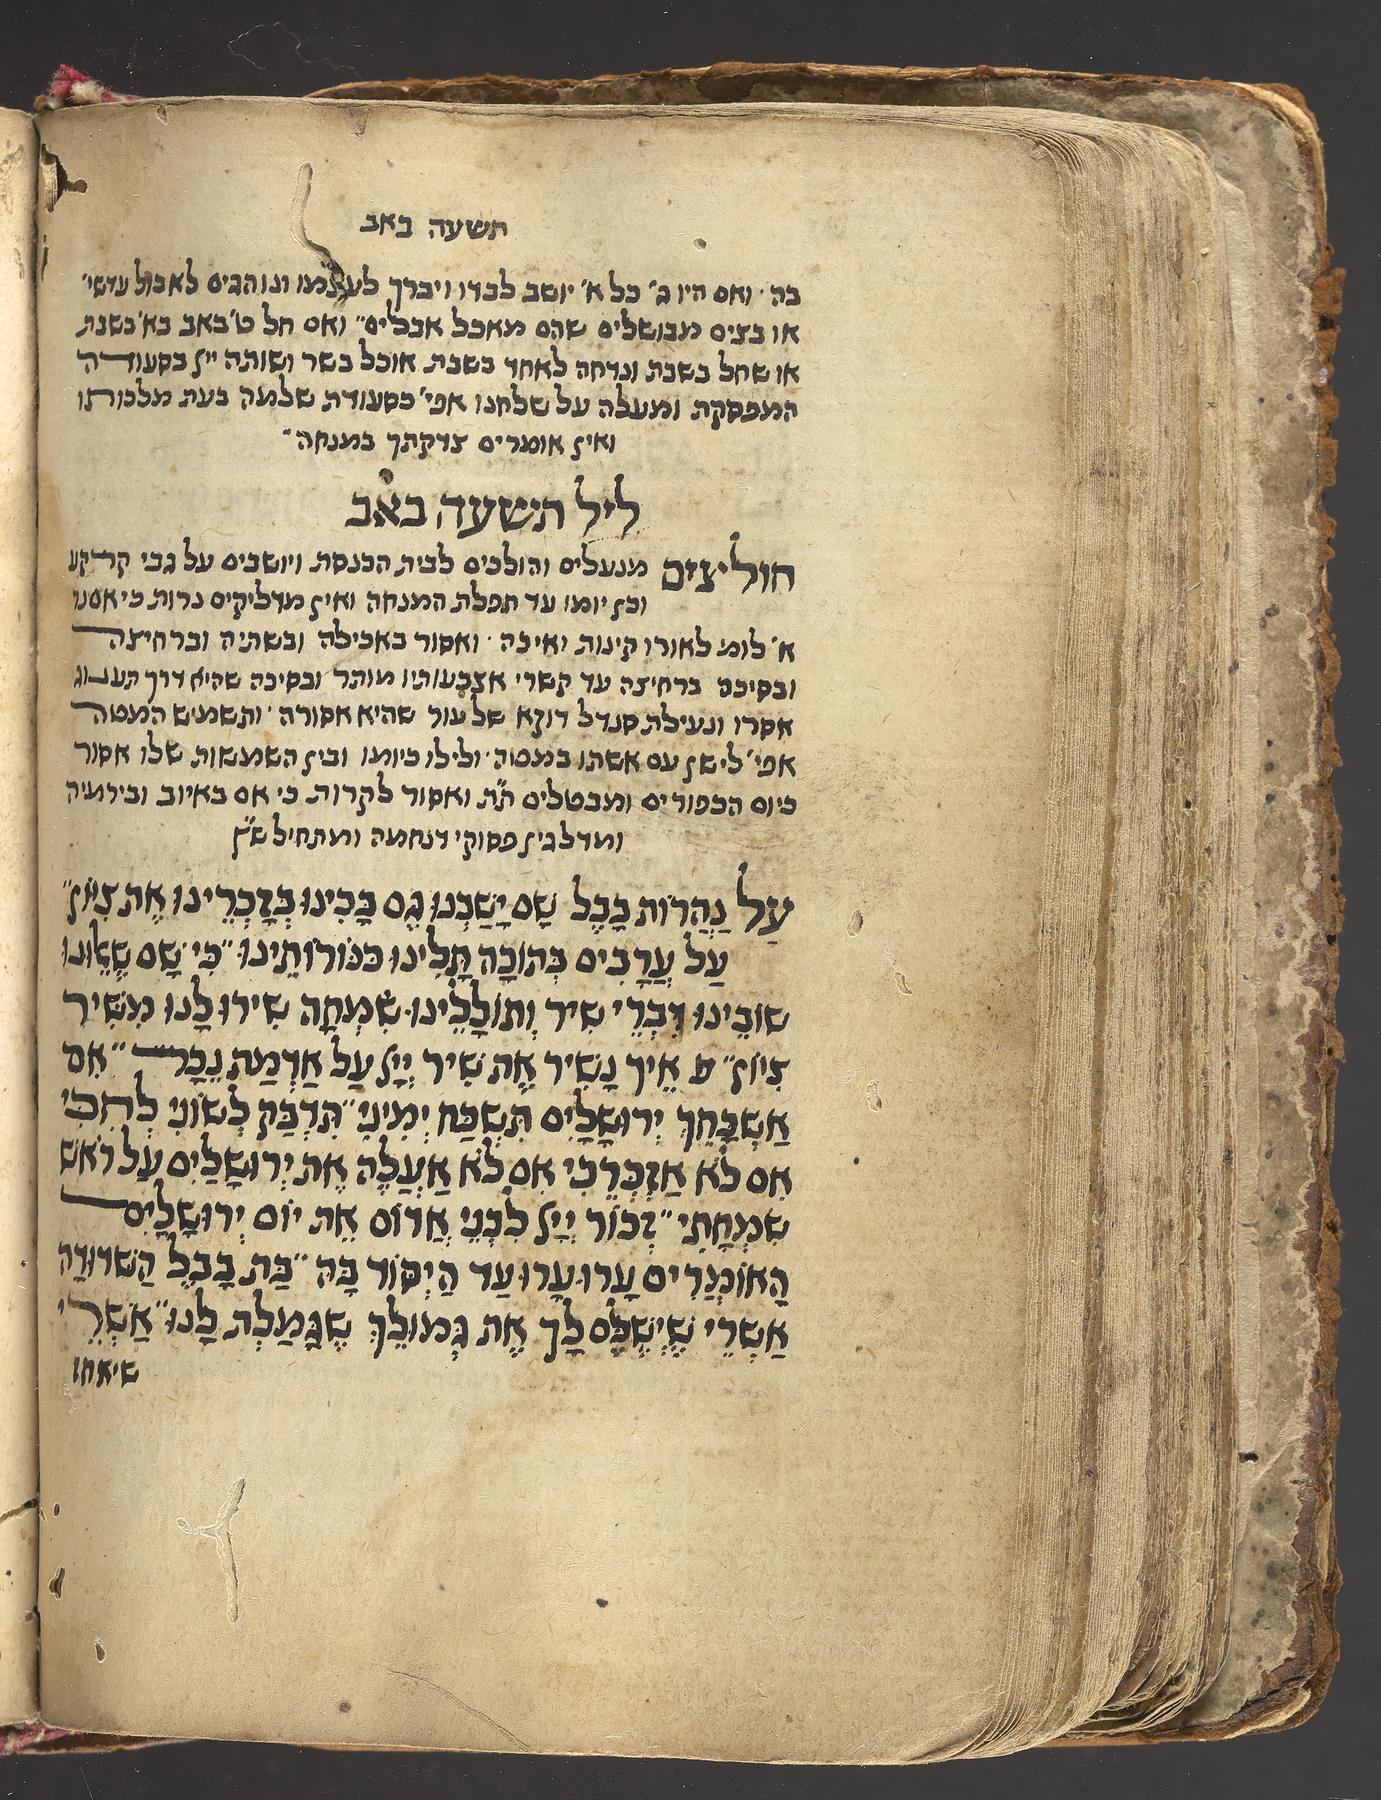 תשעה באב
בה · ואם היו ג׳ כל א׳ יושב לבדו ויברך לעצמו ונוהגים לאכול עדשי׳
או בצים מבושלים שהם מאכל אבלים״ ואם חל ט׳ באב בא׳ בשבת
או שחל בשבת ונדחה לאחד בשבת אוכל בשר ושותה יין בסעודה
המפסקת ומעלה על שלחנו אפי׳ כסעודת שלמה בעת מלכותו
ואין אומרים צדקתך במנחה״
ליל תשעה באב
חולצים מנעלים והולכים לבית הכנסת ויושבים על גבי קרקע
וכן יומו עד תפלת המנחה ואין מדליקים נרות כי אם נר
א׳ לומ׳ לאורו קינות ואיכה · ואסור באכילה ובשתיה וברחיצה
ובסיכה ברחיצה עד קשרי אצבעותיו מותר ובסיכה שהיא דרך תענוג
אסרו ונעילת סנדל דוקא של עור שהיא אסורה · ותשמיש המטה
אפי׳ לישן עם אשתו במטה · ולילו כיומו ובין השמשות שלו אסור
כיום הכפורים ומבטלים ת״ת ואסור לקרות כי אם באיוב ובירמיה
ומדלגין פסוקי דנחמה ומתחיל ש״ץ
עַל נַהֲרוֹת בָּבֶל שָׁם יָשַׁבְנוּ גַּם בָּכִינוּ בְּזָכְרֵינוּ אֶת צִיּוֹן״
עַל עֲרָבִים בְּתוֹכָהּ תָּלִינוּ כִּנּוֹרוֹתֵינוּ״ כִּי שָׁם שְׁאֵלוּנוּ
שׁוֹבֵינוּ דִּבְרֵי שִׁיר וְתוֹלָלֵינוּ שִׂמְחָה שִׁירוּ לָנוּ מִשִּׁיר
צִיּוֹן״ אֵיךְ נָשִׁיר אֶת שִׁיר יְיָ עַל אַדְמַת נֵכָר״ אִם
אֶשְׁכָּחֵךְ יְרוּשָׁלָיִם תִּשְׁכַּח יְמִינִי״ תִּדְבַּק לְשׁוֹנִי לְחִכִּי
אִם לֹא אֶזְכְּרֵכִי אִם לֹא אַעֲלֶה אֶת יְרוּשָׁלַיִם עַל רֹאשׁ
שִׂמְחָתִי״ זְכוֹר יְיָ לִבְנֵי אֱדוֹם אֵת יוֹם יְרוּשָׁלָיִם
הָאוֹמְרִים עָרוּ עָרוּ עַד הַיְסוֹד בָּהּ״ בַּת בָּבֶל הַשְּׁדוּדָה
אַשְׁרֵי שֶׁיְשַׁלֶּם לָךְ אֶת גְּמוּלֵךְ שֶׁגָּמַלְתְּ לָנוּ״ אַשְׁרֵי
שיאחז